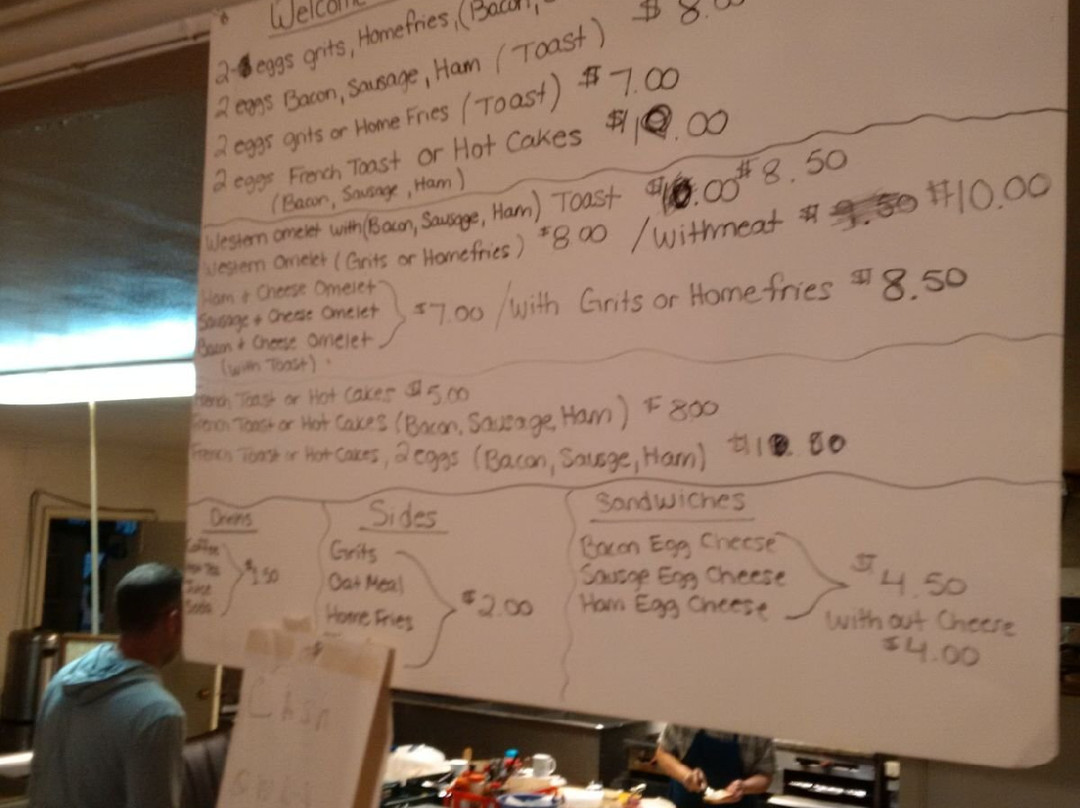 Welcome
2 eggs grits, Homefries, (Bacon,
2 eggs Bacon, Sausage, Ham (Toast) $ 8.00
2 eggs grits or Home Fries (Toast) $ 7.00
2 eggs French Toast or Hot Cakes $10.00
(Bacon, Sausage, Ham)
Western omelet with (Bacon, Sausage, Ham) Toast $10.00 $8.50
Western Omelet (Grits or Homefries) $8.00 / with meat $ 9.50 $10.00
Ham + Cheese Omelet
Sausage + Cheese Omelet
Bacon + Cheese Omelet
(with Toast)
$7.00 / with Grits or Homefries $8.50
French Toast or Hot Cakes $5.00
French Toast or Hot Cakes (Bacon, Sausage, Ham) $ 8.00
French Toast or Hot Cakes, 2 eggs (Bacon, Sausge, Ham)
Drinks
Coffee
Hot Tea
Juice
Soda
$1.50
Sides
Grits
Oat Meal
Home Fries
$2.00
Sandwiches
Bacon Egg Cheese
Sausge Egg Cheese
Ham Egg Cheese
$4.50
without Cheese
$4.00
Cash